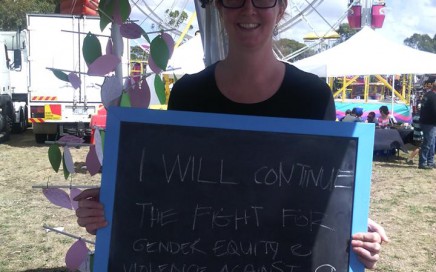 I WILL CONTINUE
THE FIGHT FOR
GENDER EQUITY &
VIOLENCE AGAINST